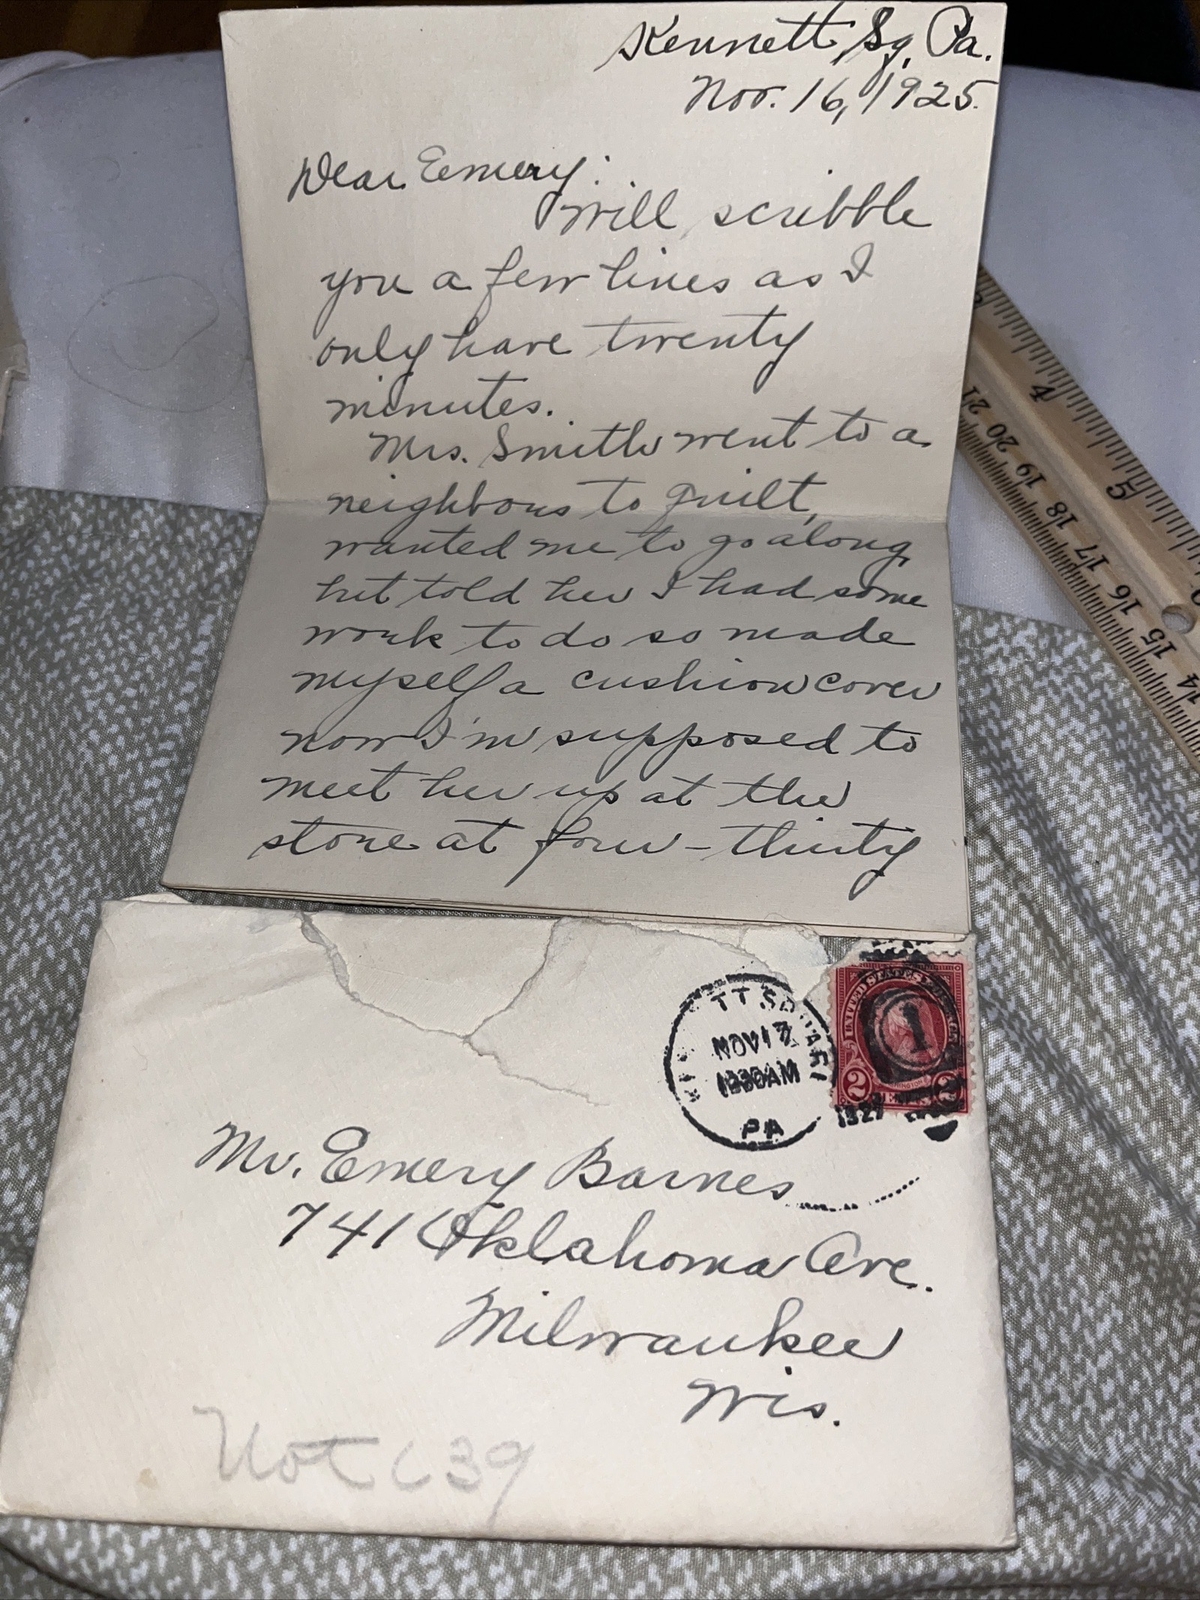 Kennett, Sq. Pa.
Nov. 16, 1925.
Dear Emery:
Will scribble
you a few lines as I
only have twenty
minutes.
Mrs. Smith went to a
neighbors to quilt,
wanted me to go along,
but told her I had some
work to do so made
myself a cushion cover
now I'm supposed to
meet her up at the
store at four-thirty
TT SQUARE
NOV 17
AM
PA
UNITED STATES
1
2
2
Mr. Emery Barnes
741 Oklahoma Ave.
Milwaukee
Wis.
Not 639
4
5
21
20
19
18
17
16
15
14